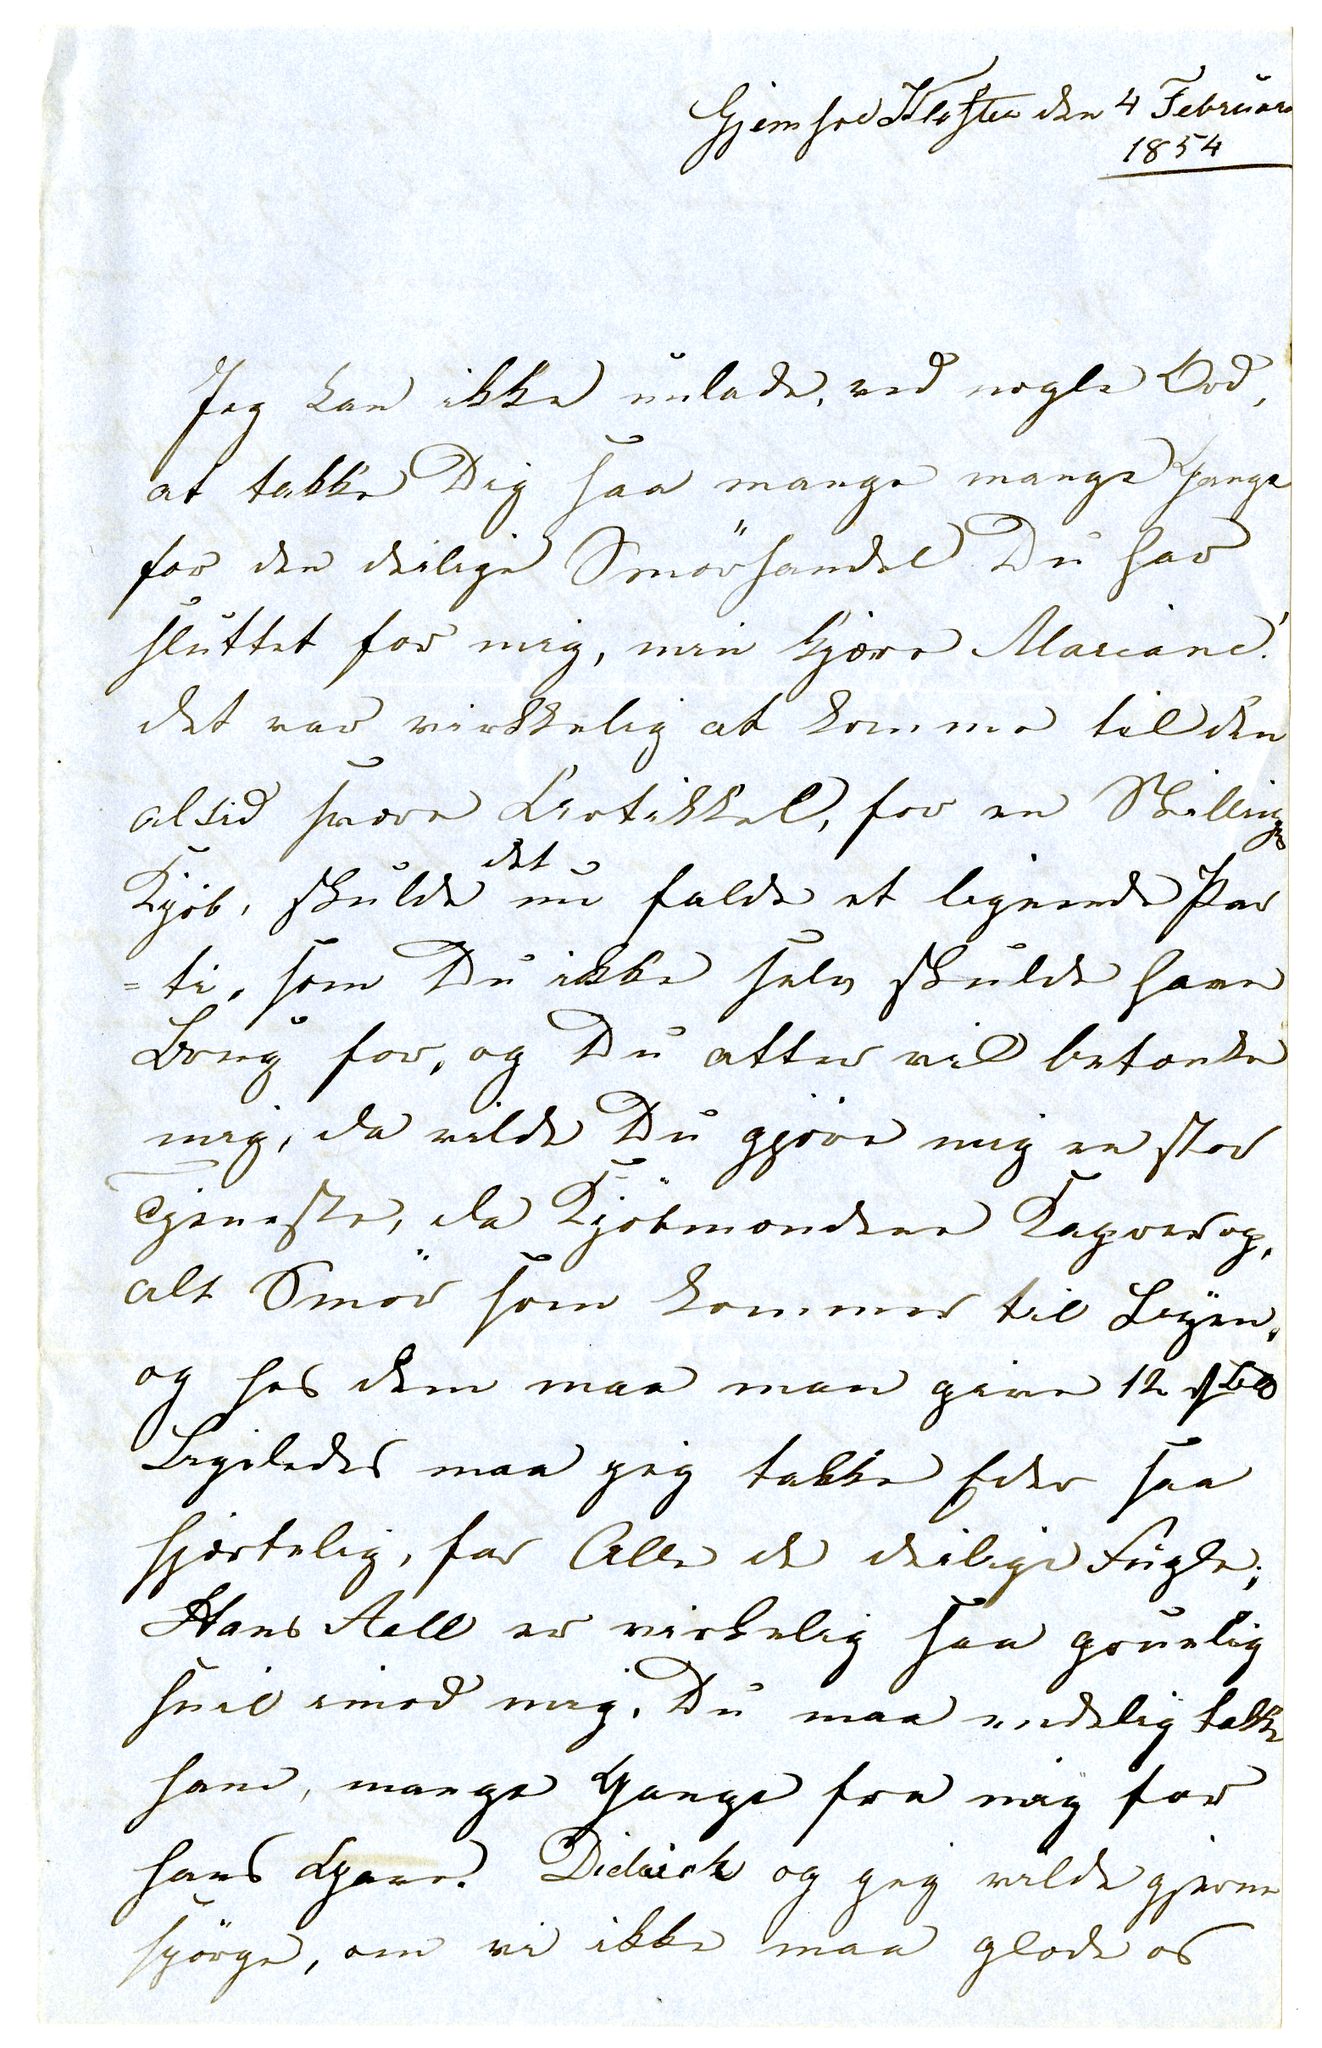 Gjemsøe Kloster den 4 Februar
1854
Jeg kan ikke unlade, ved nogle Ord,
at takke Dig saa mange mange Gange
for den deilige Smörhandel Du har
sluttet for mig, min kjære Mariane!
det var virkkelig at komme til den
alsid svære Artikkel, for en Skillings
Kjöb, skulde det nu falde et lignende Par
=ti, som Du ikke selv skulde have
Brug for, og Du atter vil betænke
mig, da vilde Du gjöre mig en stor
Tjeneste, da Kjöbmændene Kaprer op,
alt Smör som kommer til Byen,
og hos dem maa man give 12
Ligeledes maa jeg takke Eder saa
hjertelig, for Alle de deilige Fugle;
Hans Aall er virkelig saa gruelig
snil imod mig, Du maa endelig takke
ham, mange Gange fra mig for
hans Gave. Didrich og jeg vilde gjerne
spörge, om vi ikke maa glæde os